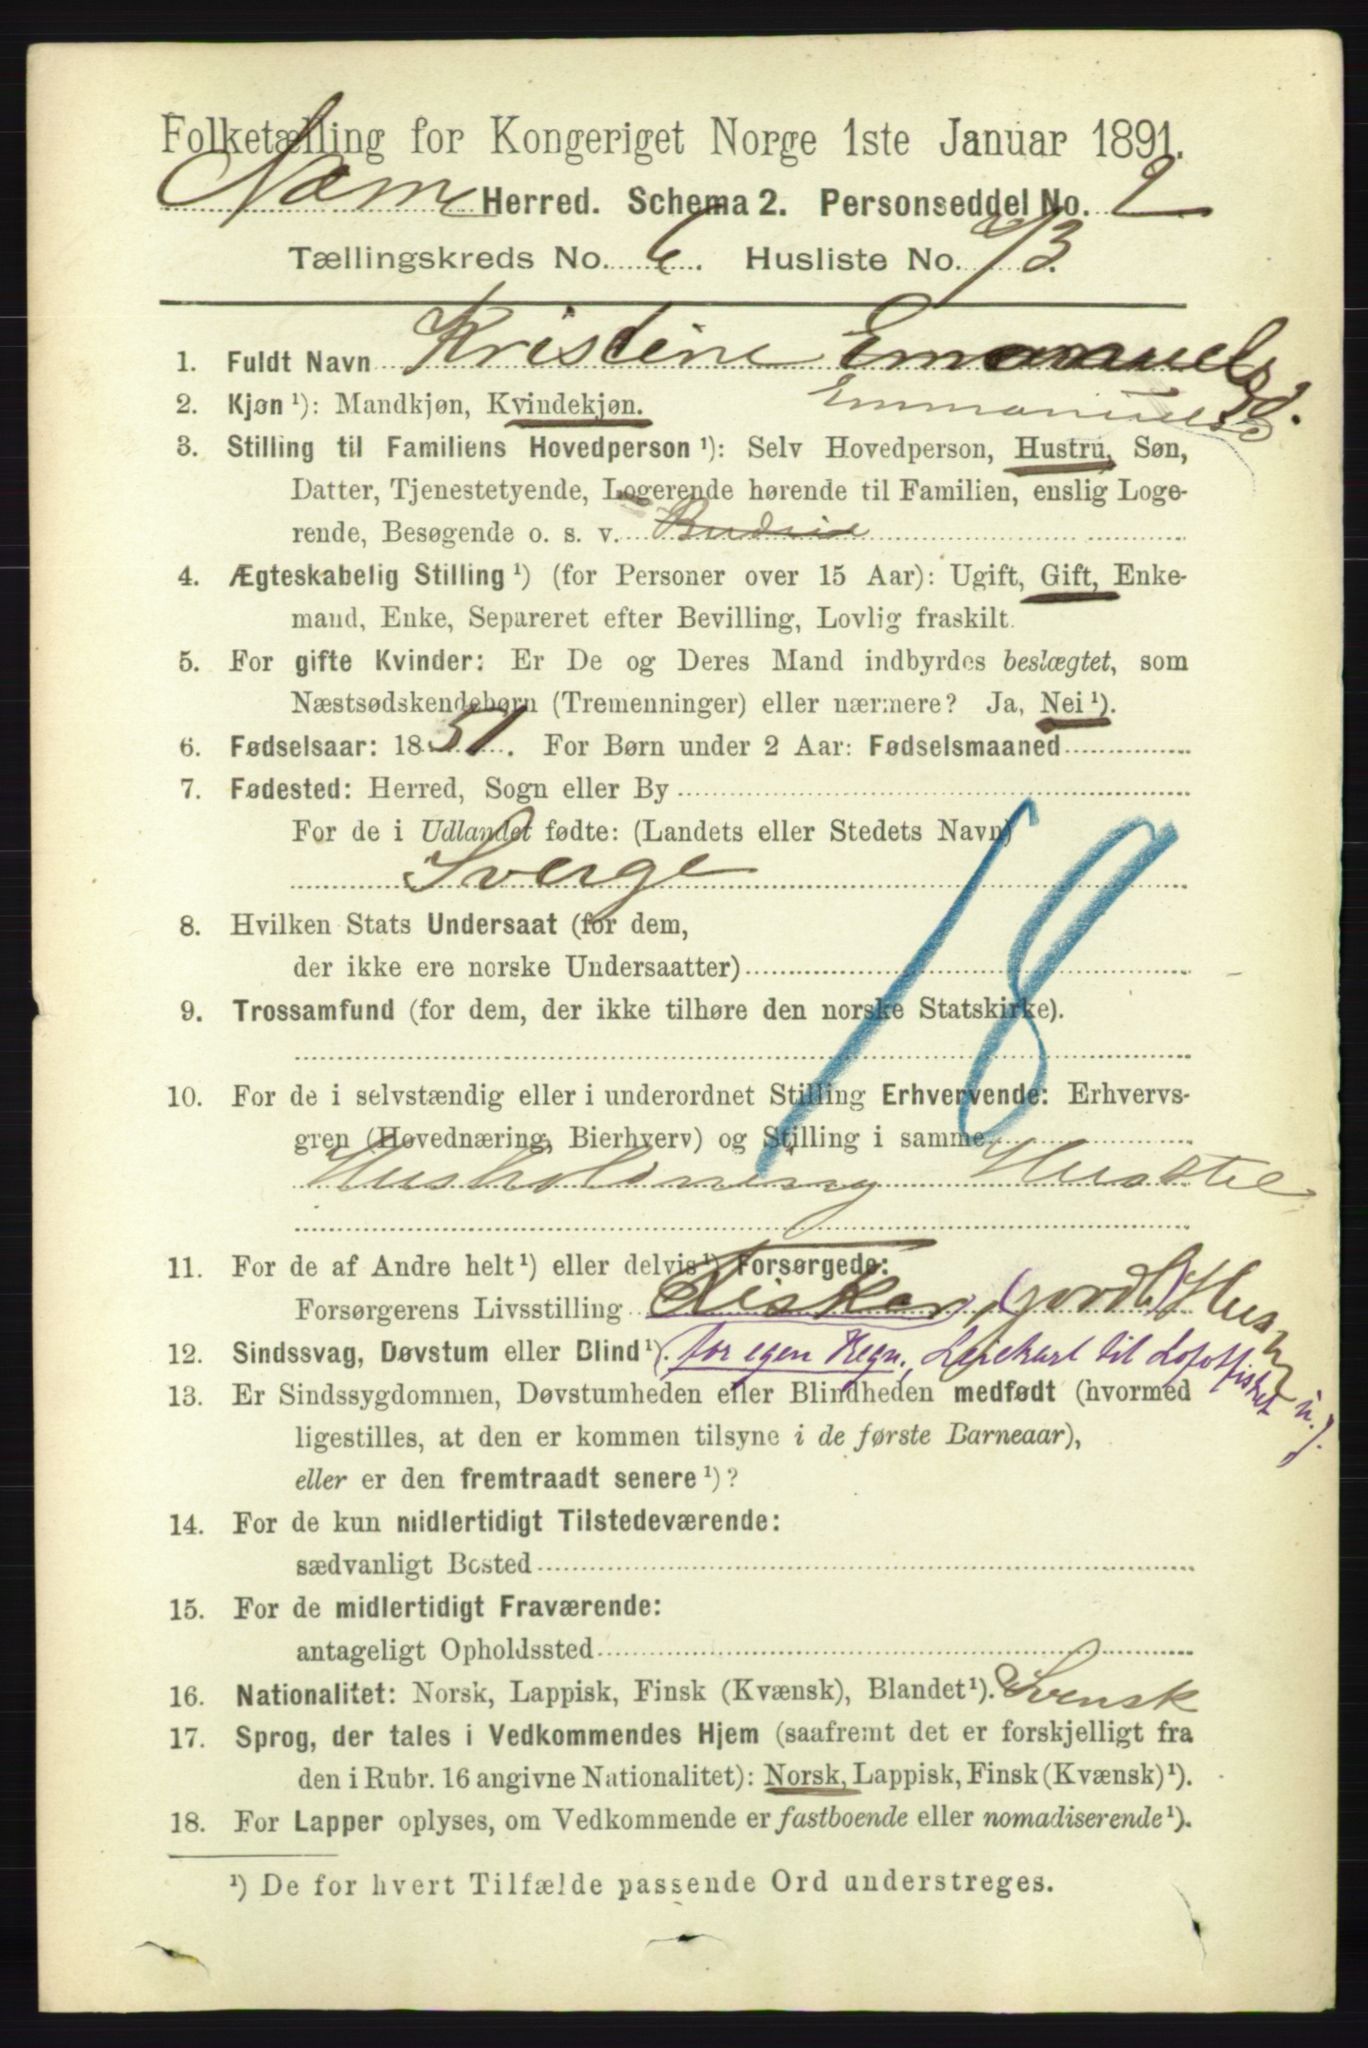 Folketælling for Kongeriget Norge 1ste Januar 1891.
Herred. Schema 2. Personseddel No. 2
Tællingskreds No. 6. Husliste No. 73.
1. Fuldt Navn Kristine Emanuelsd.
Emmanuelsd
2. Kjøn ¹): Mandkjøn, Kvindekjøn.
3. Stilling til Familiens Hovedperson ¹): Selv Hovedperson, Hustru, Søn,
Datter, Tjenestetyende, Logerende hørende til Familien, enslig Loge-
rende, Besøgende o. s. v.
4. Ægteskabelig Stilling ¹) (for Personer over 15 Aar): Ugift, Gift, Enke-
mand, Enke, Separeret efter Bevilling, Lovlig fraskilt.
5. For gifte Kvinder: Er De og Deres Mand indbyrdes beslægtet, som
Næstsødskendebørn (Tremenninger) eller nærmere? Ja, Nei ¹).
6. Fødselsaar: 1851. For Børn under 2 Aar: Fødselsmaaned
7. Fødested: Herred, Sogn eller By
For de i Udlandet fødte: (Landets eller Stedets Navn)
Sverge
18
8. Hvilken Stats Undersaat (for dem,
der ikke ere norske Undersaatter)
9. Trossamfund (for dem, der ikke tilhøre den norske Statskirke).
10. For de i selvstændig eller i underordnet Stilling Erhvervende: Erhvervs-
gren (Hovednæring, Bierhverv) og Stilling i samme
Husholdning Husstel
11. For de af Andre helt ¹) eller delvis ¹) Forsørgede:
Forsørgerens Livsstilling Fisker, (Jordl) Husm
12. Sindssvag, Døvstum eller Blind ¹). for egen Regn. Leiekarl til Lofotfisket
13. Er Sindssygdommen, Døvstumheden eller Blindheden medfødt (hvormed
ligestilles, at den er kommen tilsyne i de første Barneaar),
eller er den fremtraadt senere ¹)?
14. For de kun midlertidigt Tilstedeværende:
sædvanligt Bosted
15. For de midlertidigt Fraværende:
antageligt Opholdssted
16. Nationalitet: Norsk, Lappisk, Finsk (Kvænsk), Blandet ¹). Svensk
17. Sprog, der tales i Vedkommendes Hjem (saafremt det er forskjelligt fra
den i Rubr. 16 angivne Nationalitet): Norsk, Lappisk, Finsk (Kvænsk) ¹).
18. For Lapper oplyses, om Vedkommende er fastboende eller nomadiserende ¹).
¹) De for hvert Tilfælde passende Ord understreges.